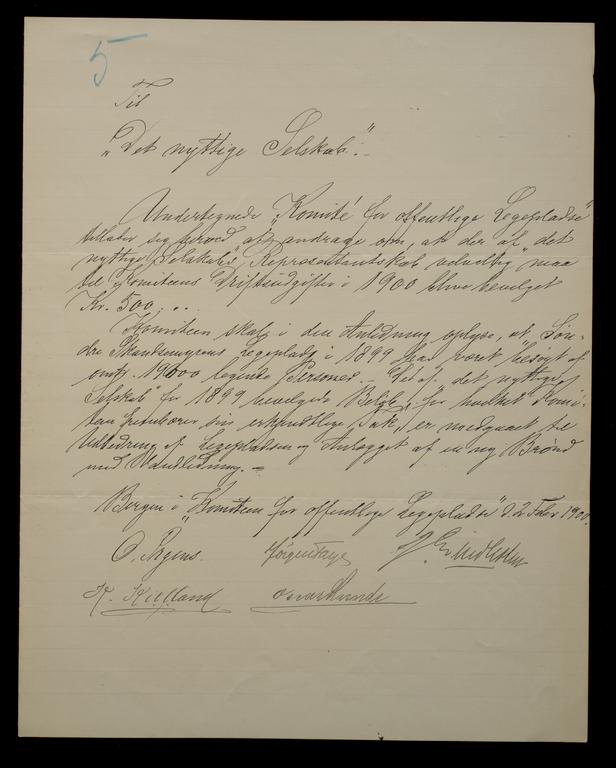 5
Til
"Det nyttige Selskab".
Undertegnede "Komité for offentlige Legepladse"
tillader sig herved at andrage om, at der af "det
nyttige Selskabs" Repræsentantskab velvillig maa
til Komiteens Driftsudgifter i 1900 blive bevilget
Kr. 500,..
Komiteen skal i den Anledning oplyse, at Søn-
dre Skandsemyrens Legeplads i 1899 har været besøgt af
omtr. 19000 legende Personer. Det af "det nyttige
Selskab" for 1899 bevilgede Beløb, for hvilket Komi-
teen frembærer sin erkjendtlige Tak, er medgaaet til
Udbedring af Legepladsen og Anlægget af en ny Brønd
med Vandledning.
Bergen i "Komiteen for offentlige Legepladse" d. 2 Febr 1900.
Jørgen Faye
K. Kielland